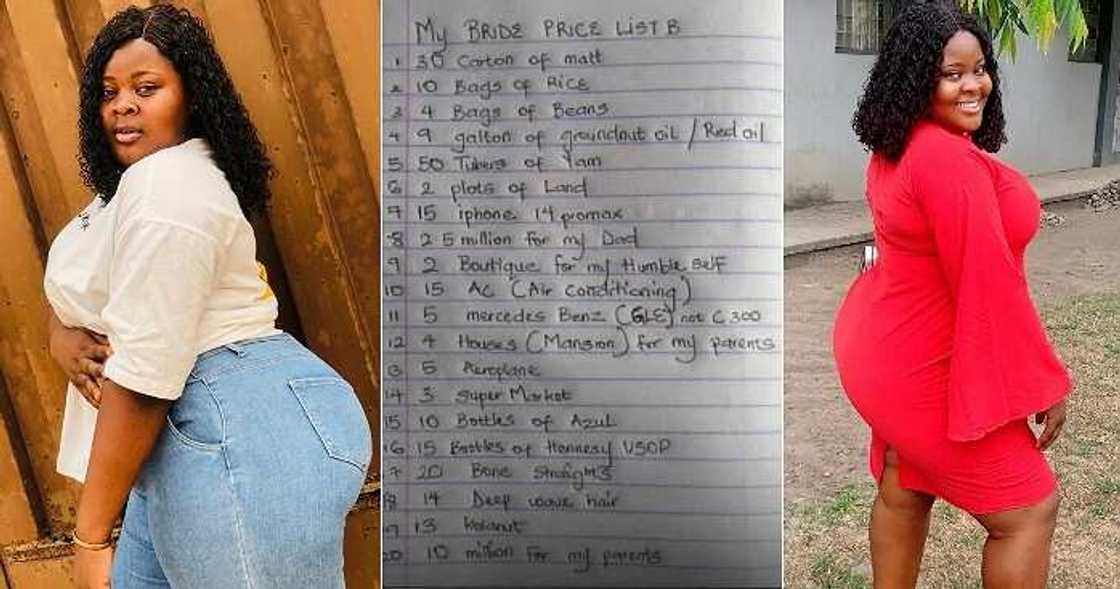 My BRIDE PRICE LIST B
1 30 Carton of malt
2 10 Bags of Rice
3 4 Bags of Beans
4 9 gallon of groundnut oil / Red oil
5 50 Tubers of Yam
6 2 plots of Land
7 15 iphone 14 promax
8 25 million for my Dad
9 2 Boutique for my Humble self
10 15 AC (Air conditioning)
11 5 mercedes Benz (GLE) not C300
12 4 Houses (Mansion) for my parents
13 5 Aeroplane
14 3 Super Market
15 10 Bottles of Azul
16 15 Bottles of Hennesy VSOP
7 20 Bone straights
8 14 Deep wave hair
9 13 Kolanut
20 10 million for my parents